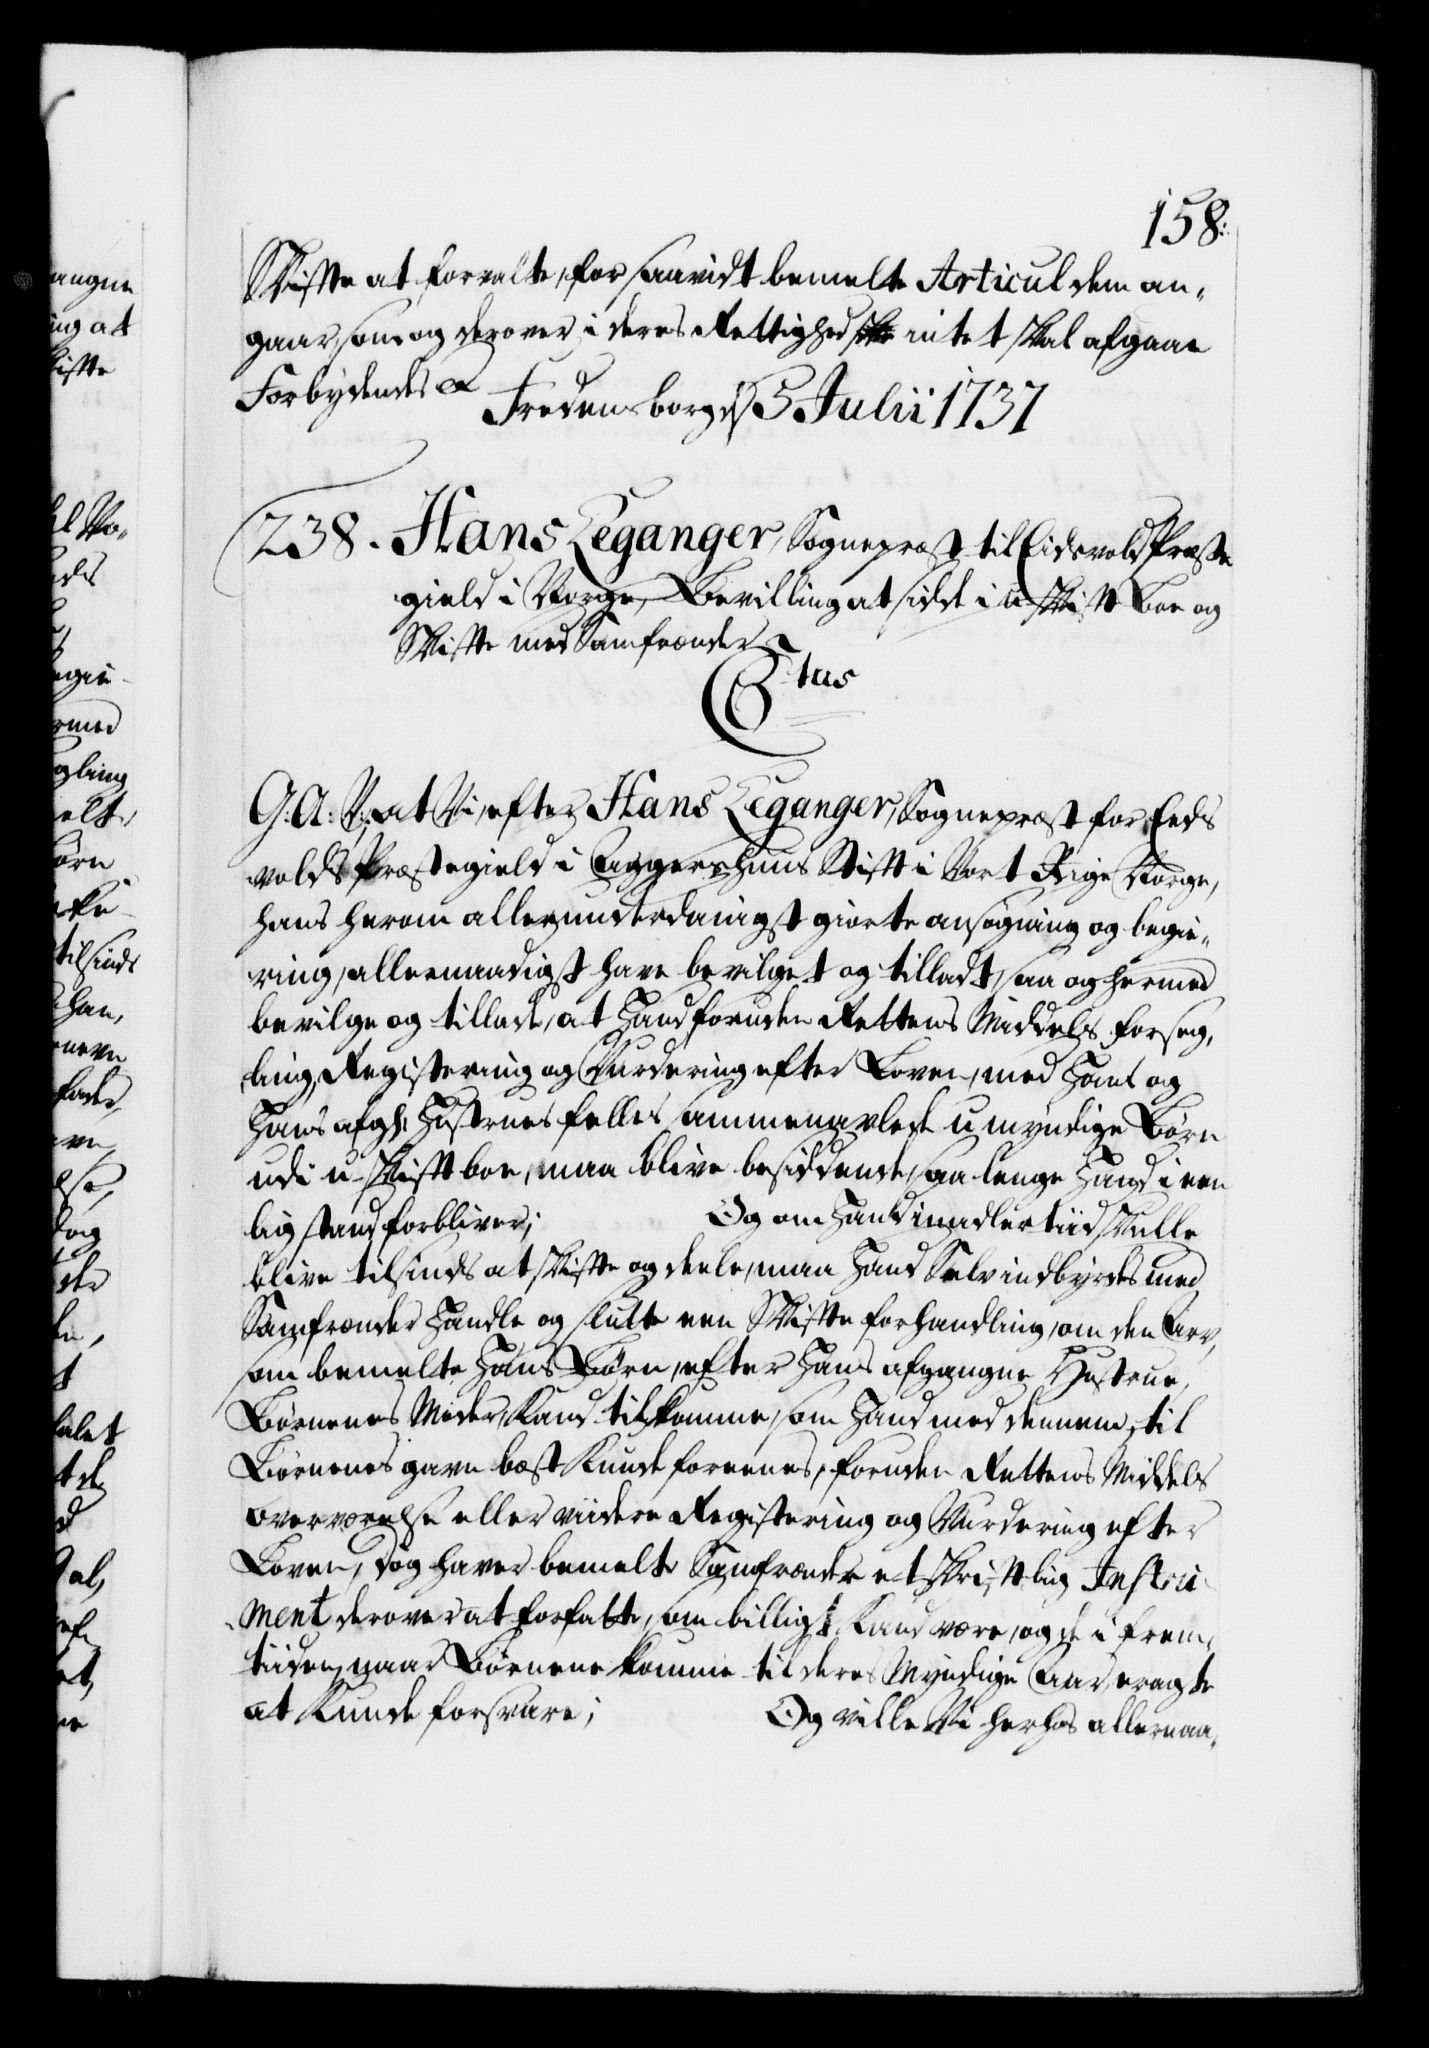 158.
Skifte at forvalte, for saavidt bemelte Articul dem an-
gaar, som og derover i deres Rettighed intet skal afgaae
Forbydendes &
Fredensborg d. 5 Julii 1737
238. Hans Leganger, Sognepræst til Eidsvold Præste
gield i Norge, Bevilling at sidde i u-skift Boe og
Skifte med Samfrænder
C6tus
G: A: V: at Vi, efter Hans Leganger, Sognepræst for Eeds
volds Præstegield i Aggershuus Stift i Vort Rige Norge,
hans herom allerunderdanigst giorte ansøgning og begie-
ring, allernaadigst have bevilget og tilladt, saa og hermed
bevilge og tillade, at Hand foruden Rettens Middels forseg-
ling, Registering og Vurdering efter Loven, med Hans og
Hans afg: Hustrues felles sammenavlede umyndige Børn
udi u-skift boe, maa blive besiddende, saa lenge Hand i een
lig stand forbliver; Og om Hand imidlertiid skulle
blive tilsinds at skifte og deele, maa Hand Selv indbyrdes med
Samfrænder Handle og slutte een Skifte forhandling, om den Arv,
som bemelte Hans Børn, efter Hans afgangne Hustrue,
Børnenes Moder, Kand tilkomme, som Hand med dennem, til
Børnenes gavn best Kunde foreenes, foruden Rettens Middels
overværelse eller viidere Registering og Vurdering efter
Loven, dog haver bemelte Samfrænder et skriftlig Instru-
ment derover at forfatte, som billigt Kand være, og de i frem-
tiiden, naar Børnene komme til deres Myndige Aar, eragte
at Kunde forsvare; Og ville Vi herhos allernaa-